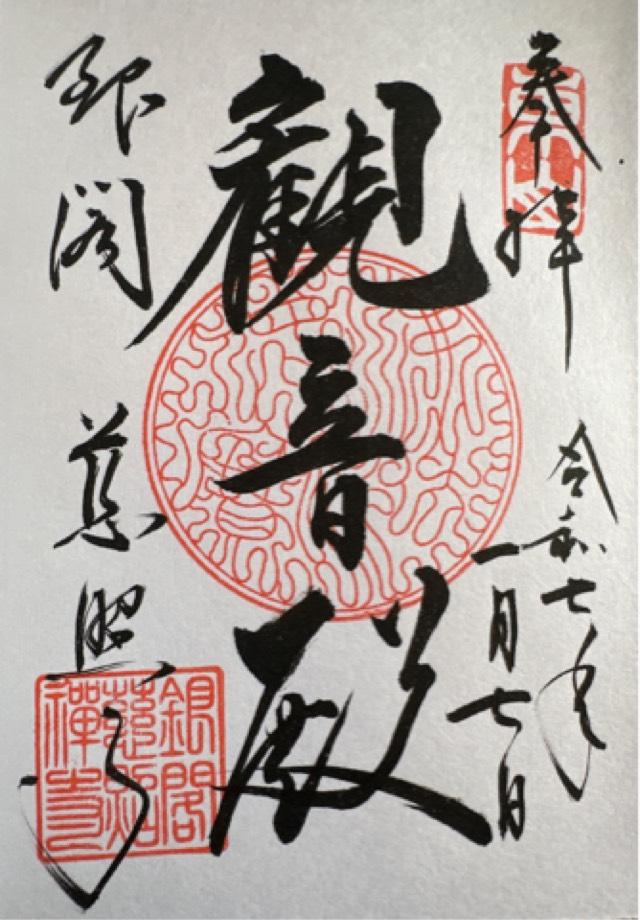 奉拝
令和七年
一月七日
観音殿
銀閣 慈照寺
銀閣
慈照
禅寺